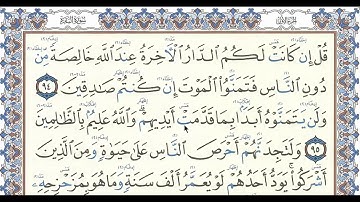 قُلْ إِن كَانَتْ لَكُمُ الدَّارُ الْآخِرَةُ عِندَ اللَّهِ خَالِصَةً مِّن
دُونِ النَّاسِ فَتَمَنَّوُا الْمَوْتَ إِن كُنتُمْ صَادِقِينَ ٩٤
وَلَن يَتَمَنَّوْهُ أَبَدًا بِمَا قَدَّمَتْ أَيْدِيهِمْ وَاللَّهُ عَلِيمٌ بِالظَّالِمِينَ
٩٥ وَلَتَجِدَنَّهُمْ أَحْرَصَ النَّاسِ عَلَىٰ حَيَاةٍ وَمِنَ الَّذِينَ
أَشْرَكُوا يَوَدُّ أَحَدُهُمْ لَوْ يُعَمَّرُ أَلْفَ سَنَةٍ وَمَا هُوَ بِمُزَحْزِحِهِ